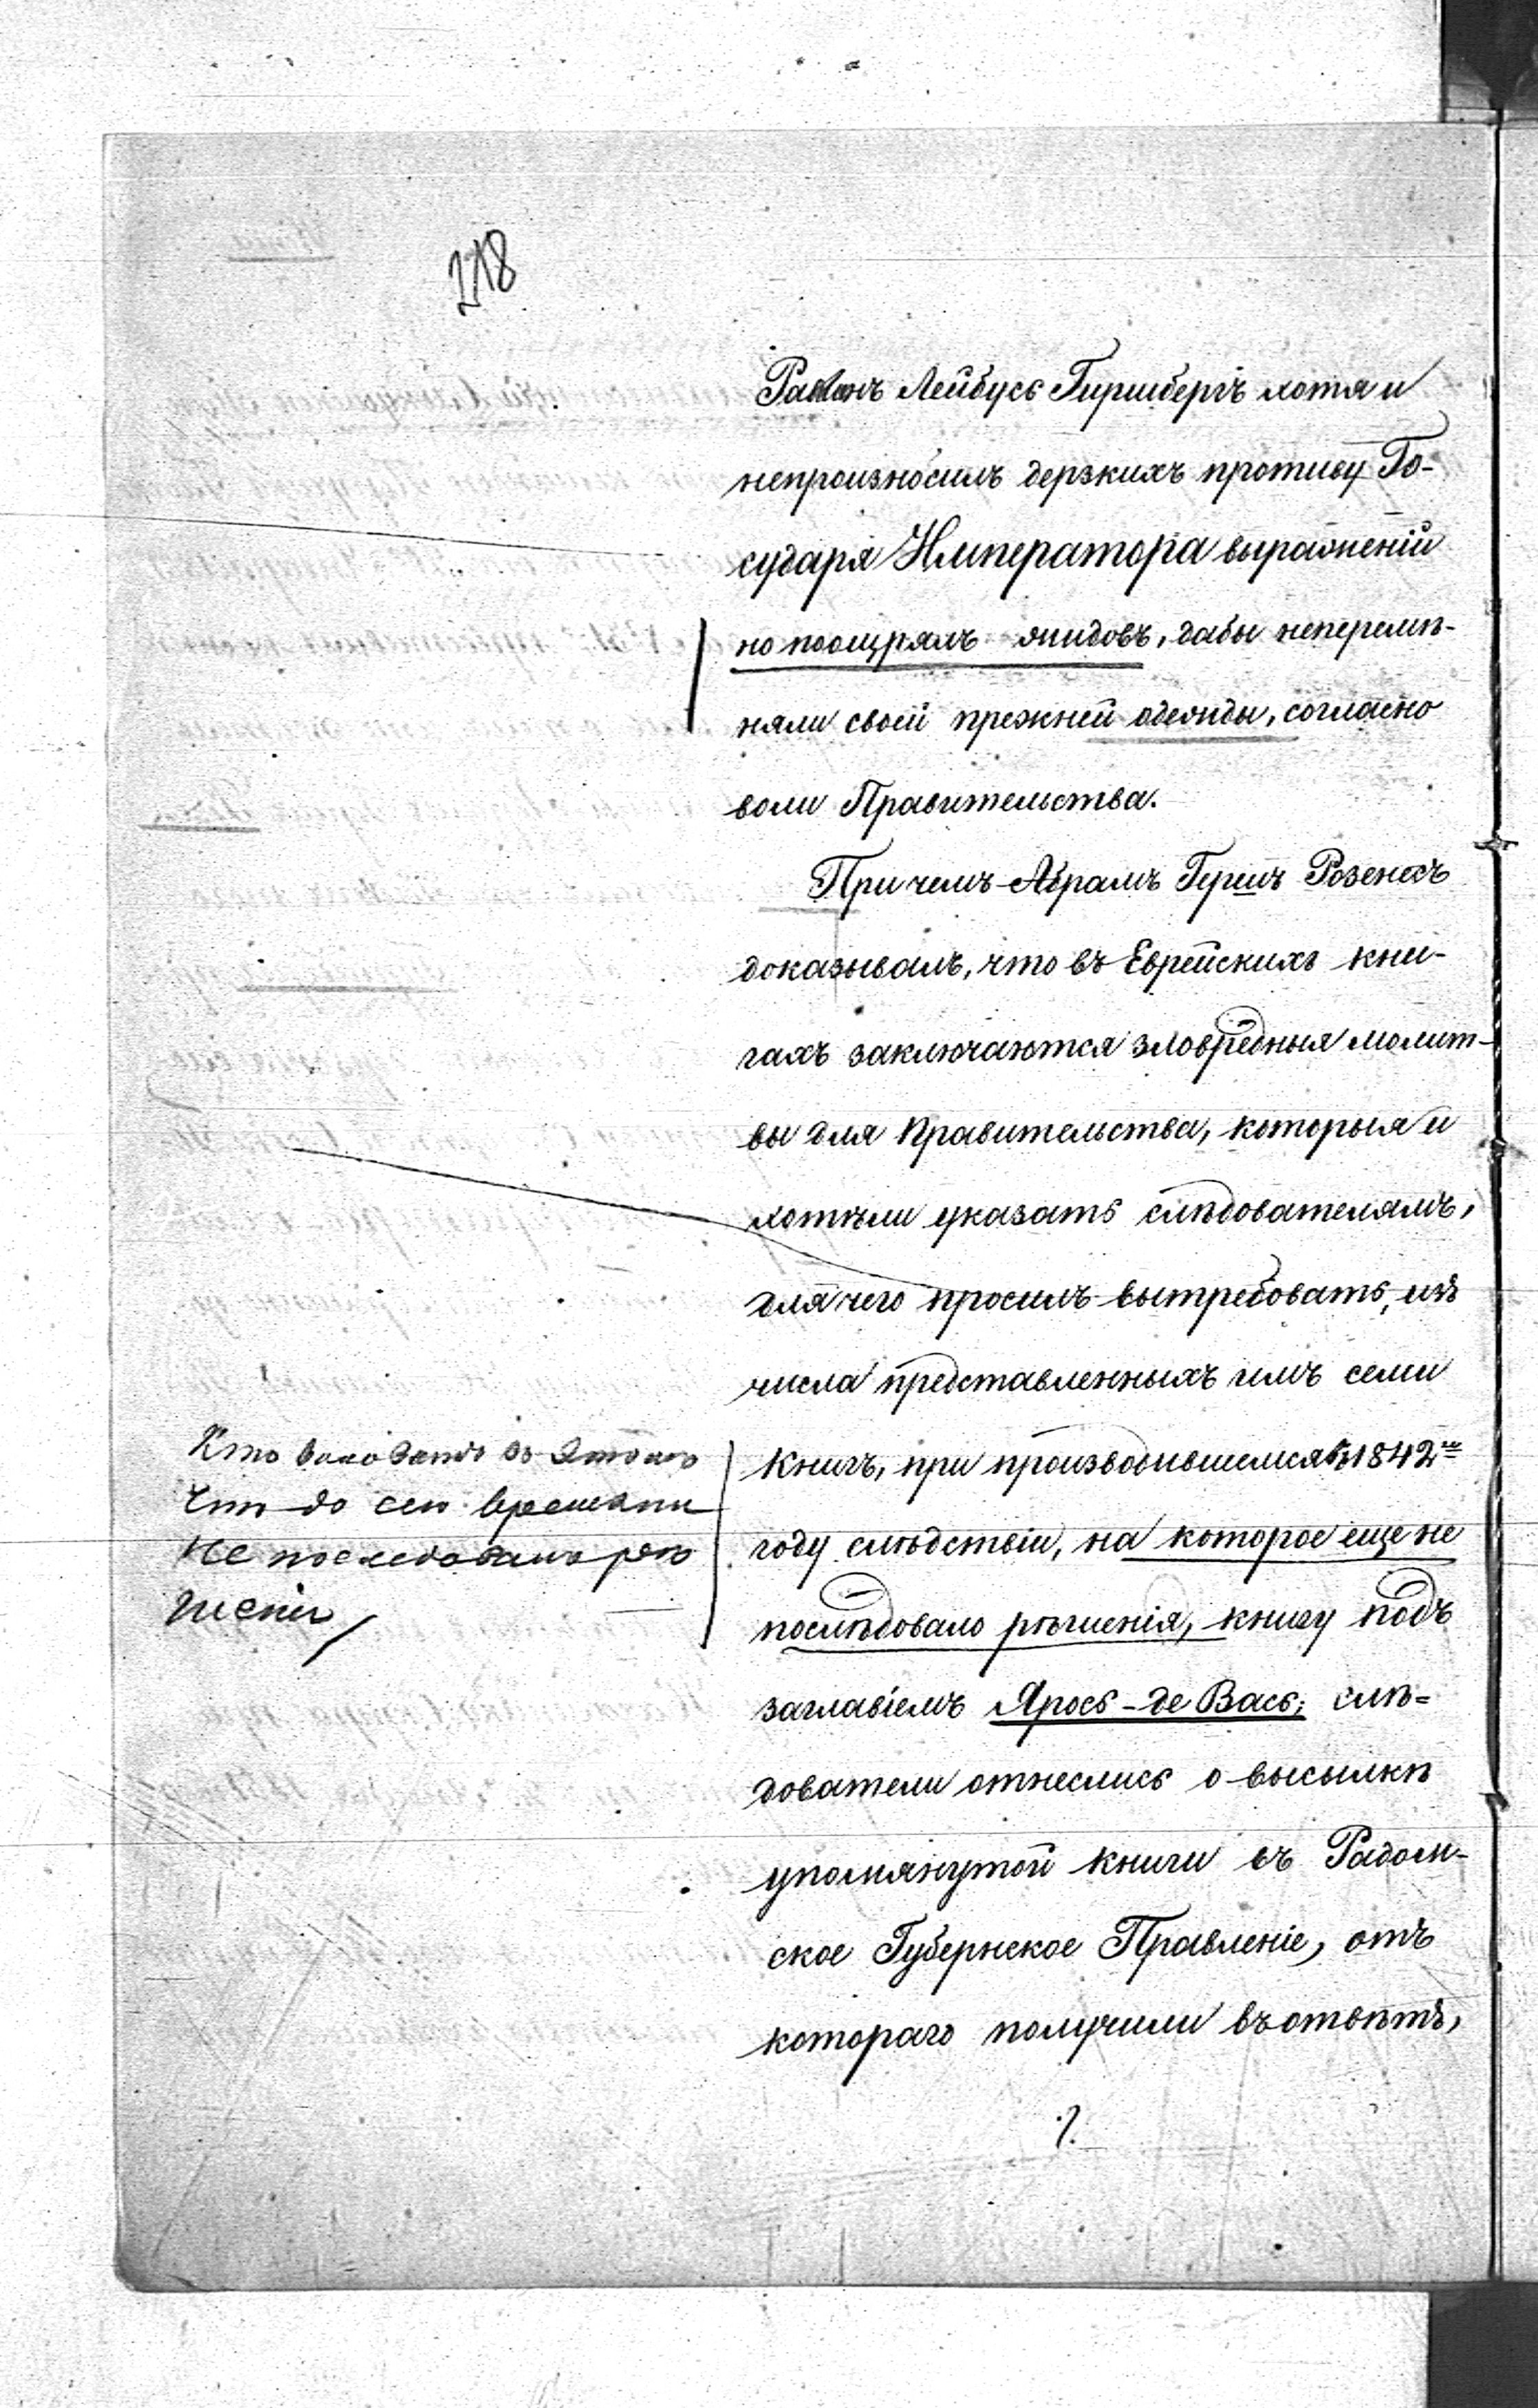 218
Лейбусь Гиршбергъ хотя и
непроизносилъ дерзкихъ противу Го-
сударя Императора выраженій
но поощрялъ жидовъ, дабы неперемѣ-
няли своей прежней одежды, согласно
воли Правительства.
При чемъ Абрамъ Герсшъ Розенесъ
доказывалъ, что въ Еврейскихъ кни-
гахъ заключаются зловредныя молит-
вы для Правительства, которыя и
хотѣли указать слѣдователямъ,
для чего просилъ вытребовать, изъ
числа представленныхъ имъ семи
книгъ, при производившемся въ 1842мъ
году слѣдствіи, на которое еще не
послѣдовало рѣшенія, книгу подъ
заглавіемъ Ярось-де Вась; слѣ=
дователи отнеслись о высылкѣ
упомянутой книги въ Радом-
ское Губернское Правленіе, отъ
котораго получили въ отвѣтъ,
./.
Кто въ
что до сего времени
не последовало рѣ
шенія